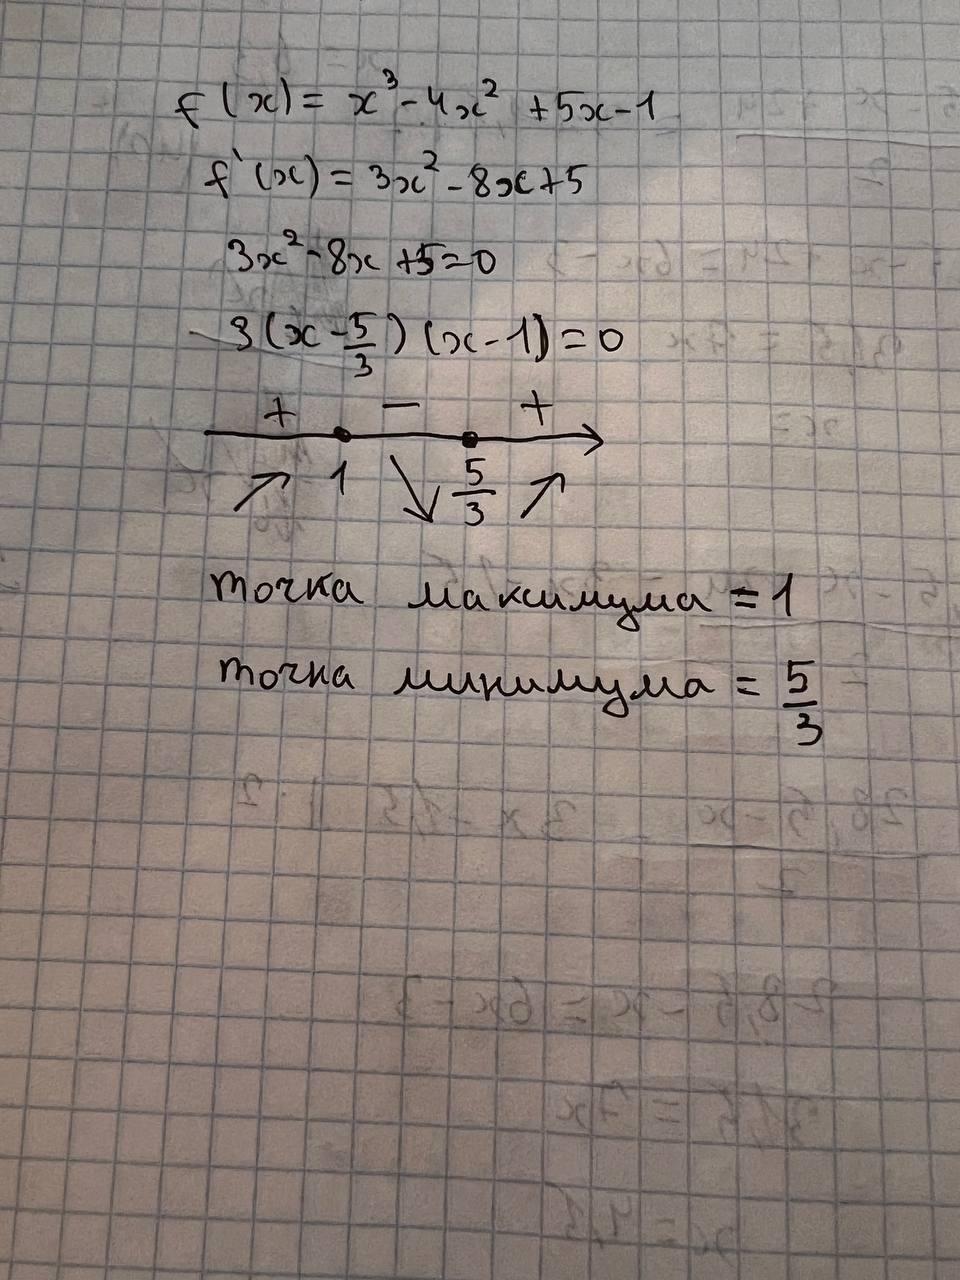 f(x) = x³ - 4x² + 5x - 1
f'(x) = 3x² - 8x + 5
3x² - 8x + 5 = 0
3(x - 5/3)(x - 1) = 0
+ − +
1 5/3
точка максимума = 1
точка минимума = 5/3